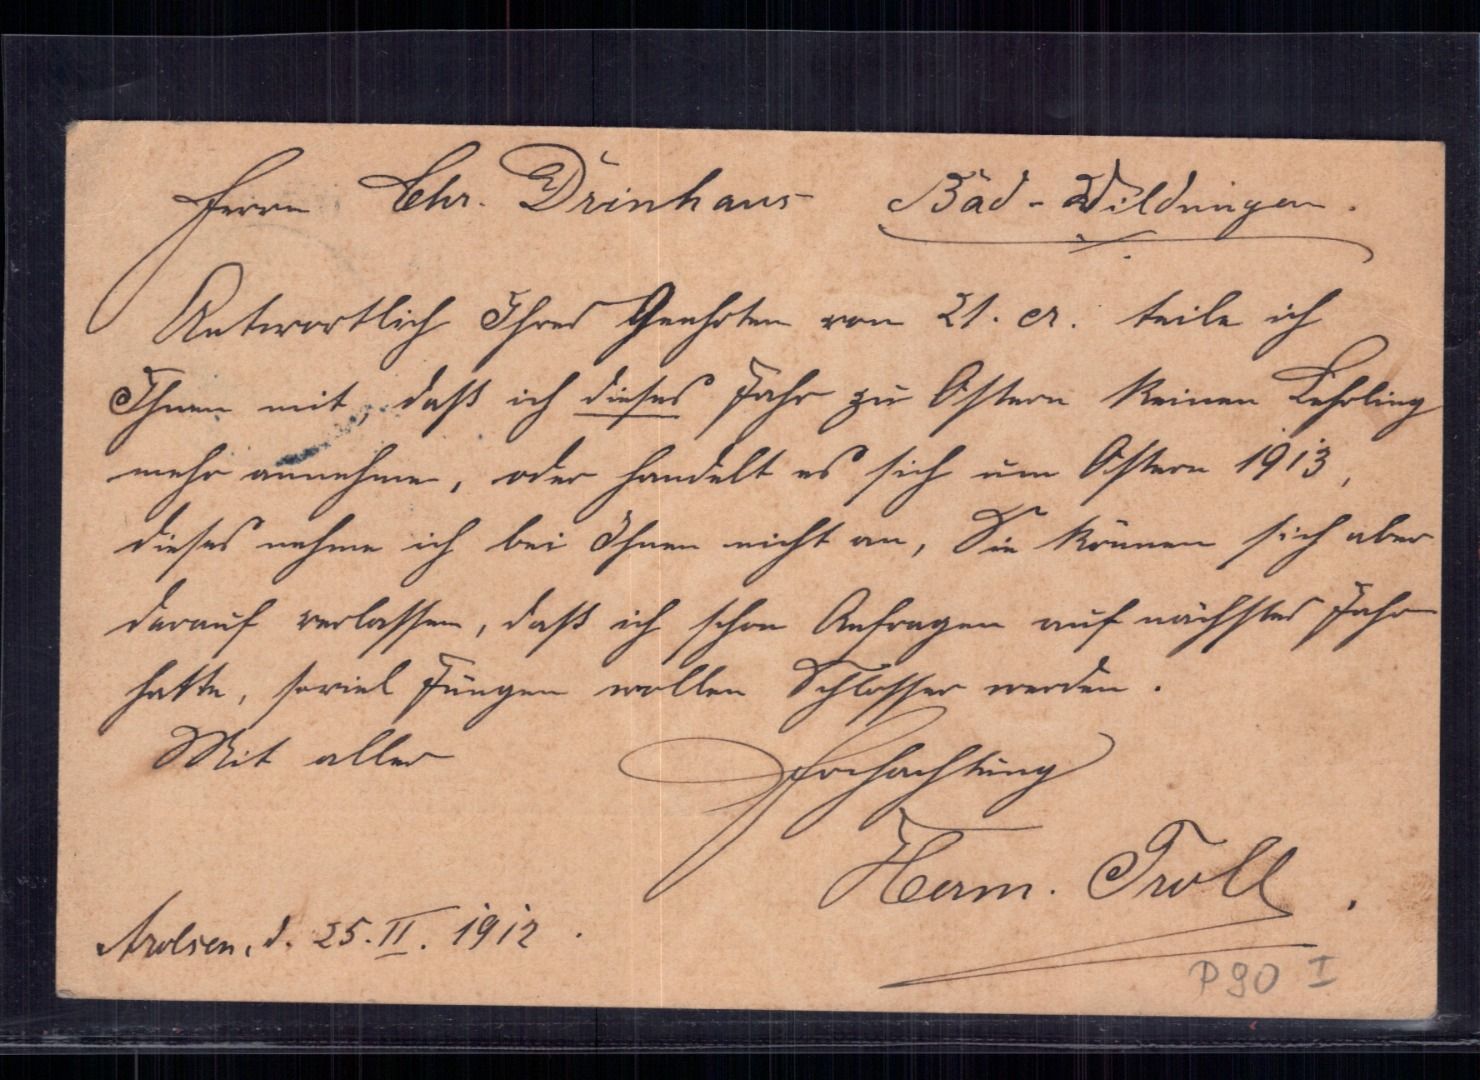 Herrn Chr. Drinhaus Bad-Wildungen.
Antwortlich Ihres Geehrten vom 21. cr. teile ich
Ihnen mit, daß ich dieses Jahr zu Ostern keinen Lehrling
mehr annehme, oder handelt es sich um Ostern 1913,
dieses nehme ich bei Ihnen nicht an, Sie können sich aber
darauf verlassen, daß ich schon Anfragen auf nächstes Jahr
hatte, soviel Jungen wollen Schlosser werden.
Mit aller Hochachtung
Herm. Troll.
Arolsen, d. 25. II. 1912.
P90 I